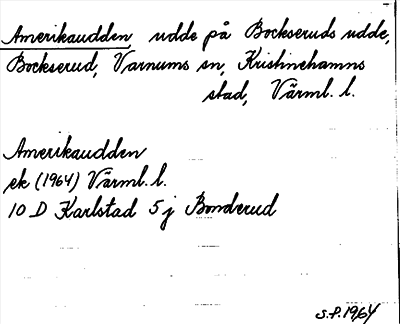 Amerikaudden, udde på Bockseruds udde,
Bockserud, Varnums sn, Kristinehamns
stad, Värml. l.
Amerikaudden
ek (1964) Värml. l.
10 D Karlstad 5 j Bonderud
S.P. 1964